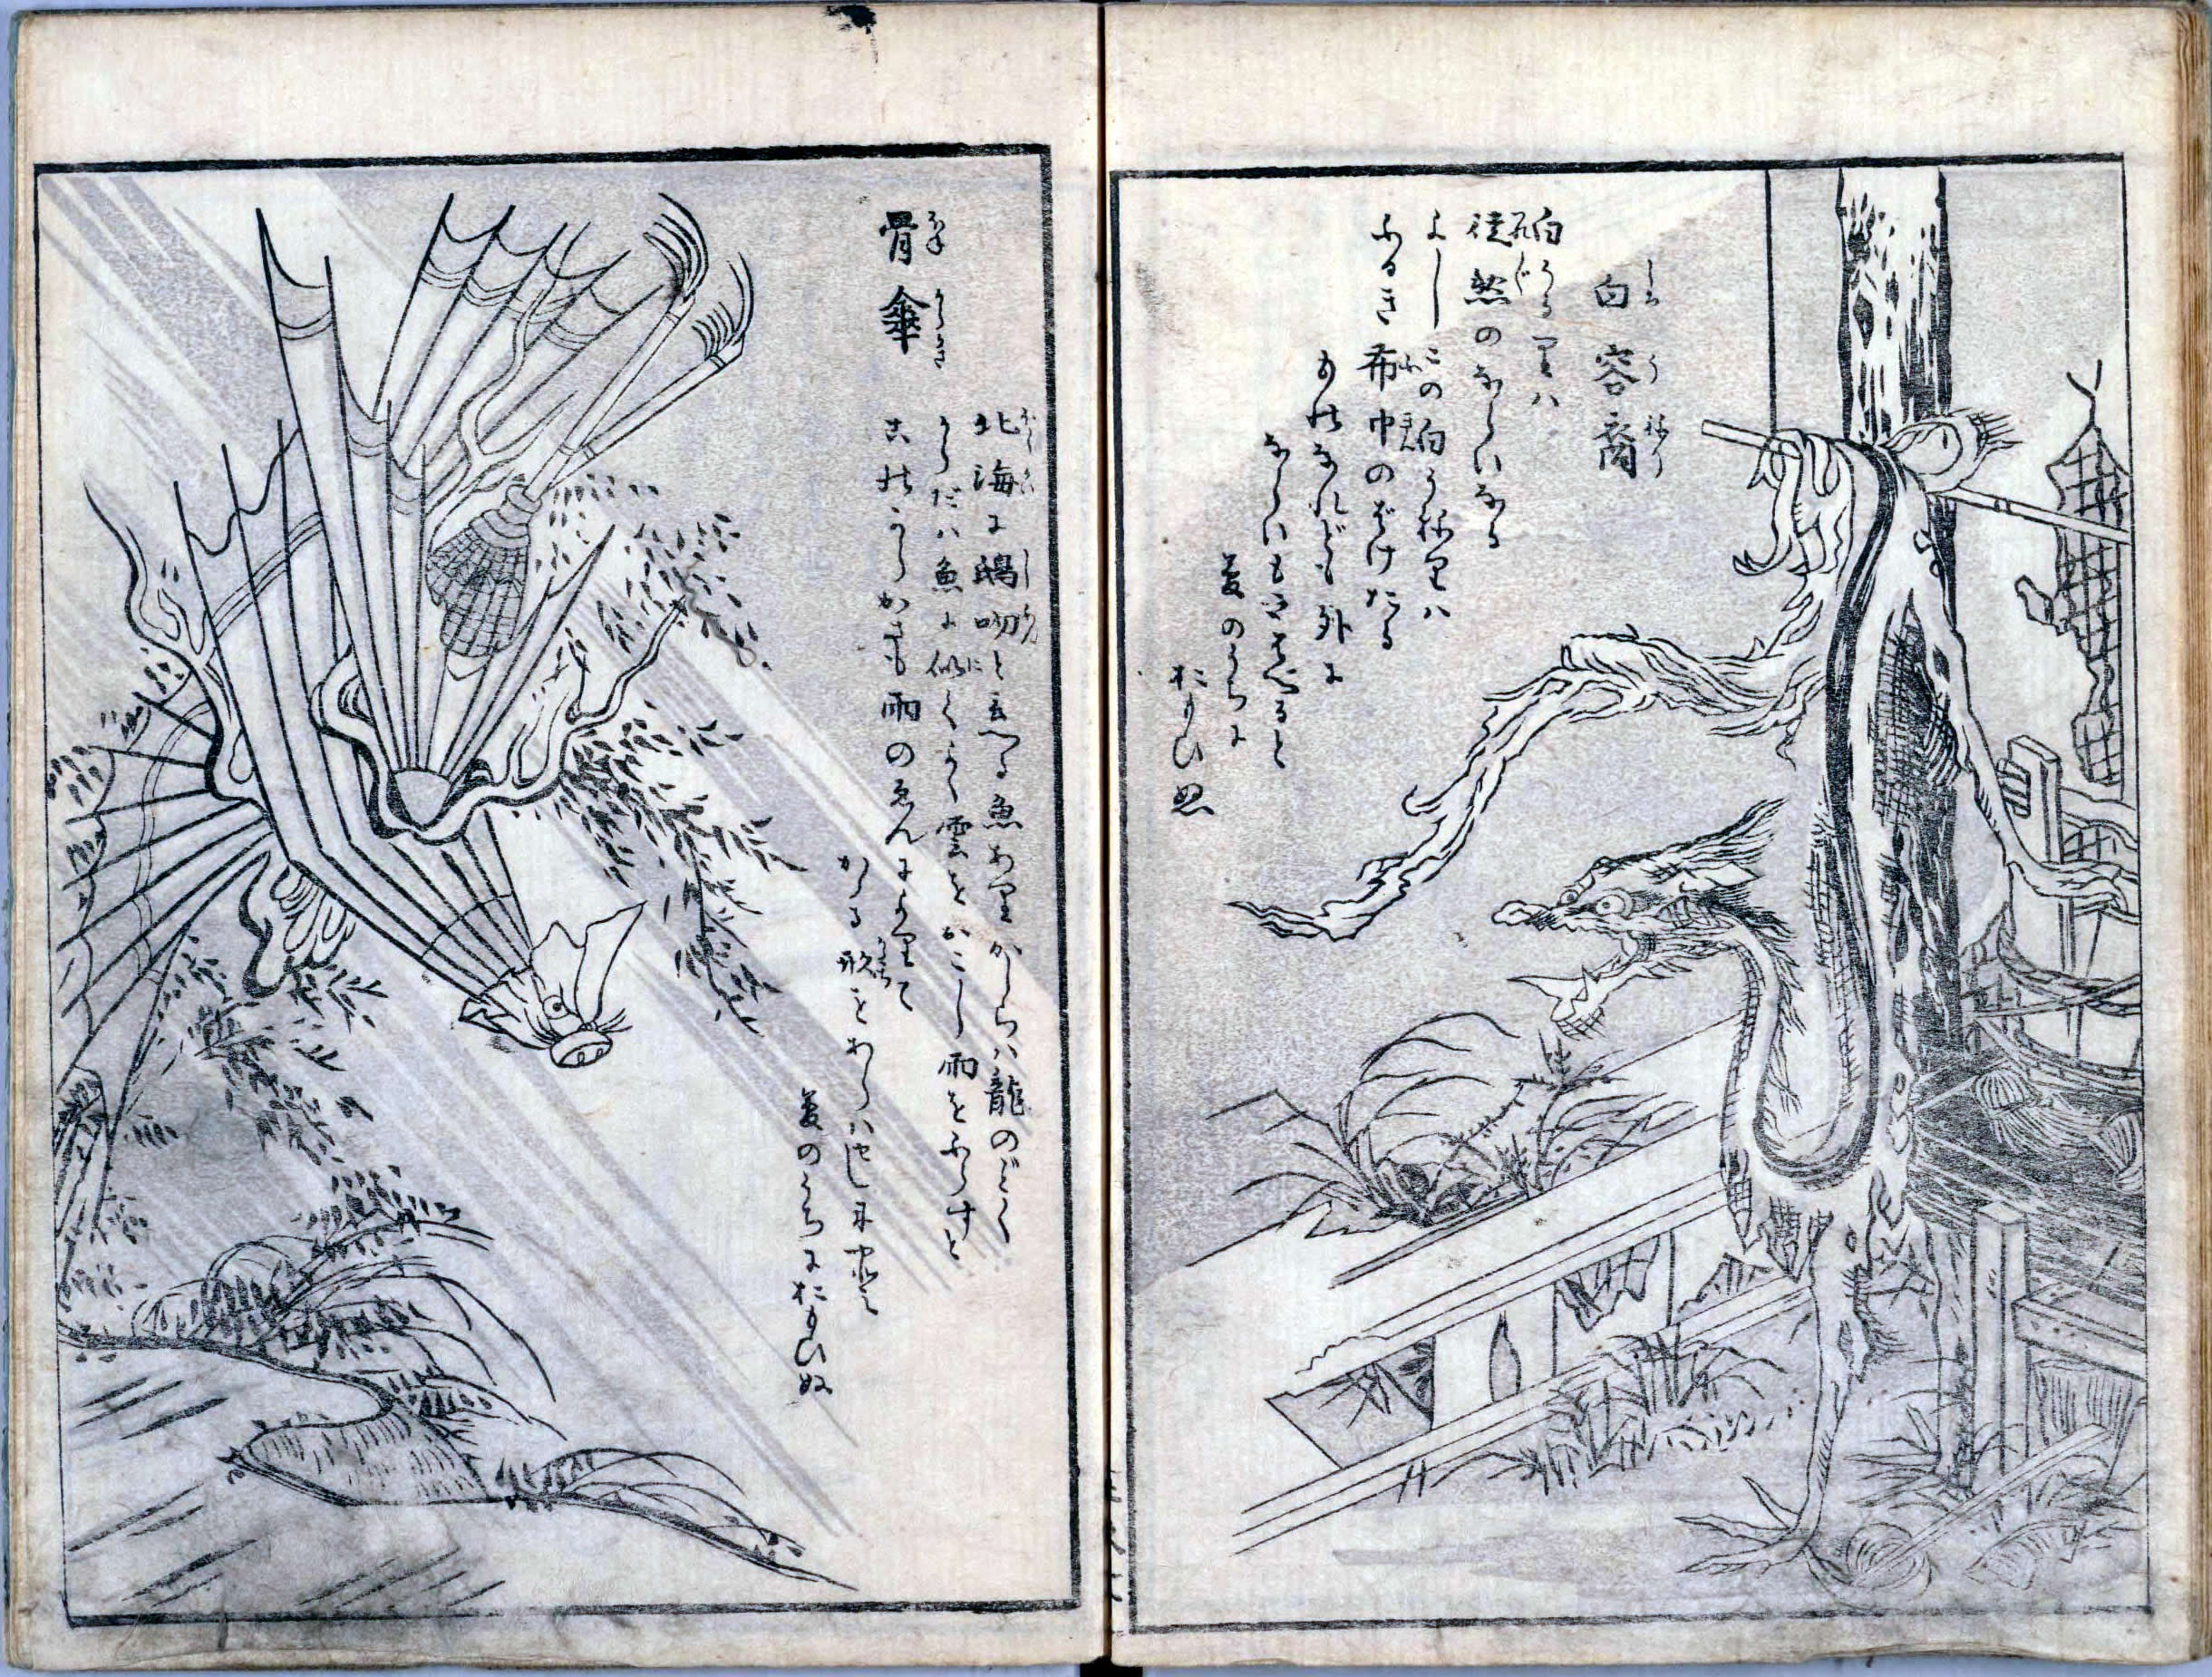 白容裔
しろうねり
白うるりハ
徒然のならいなる
よしこの白うねりハ
ふるき布巾のばけたる
ものなれども外に
ならいもさむべると
夢のうちに
おもひぬ
骨傘
ほねからかさ
北海に鴟吻と云へる魚ありかしらハ龍のごとく
からだハ魚に似てよく雲をおこし雨をふらすと
このからかさも雨のゑんによりて
かゝる形をあらハせしにやと
夢のうちにおもひぬ